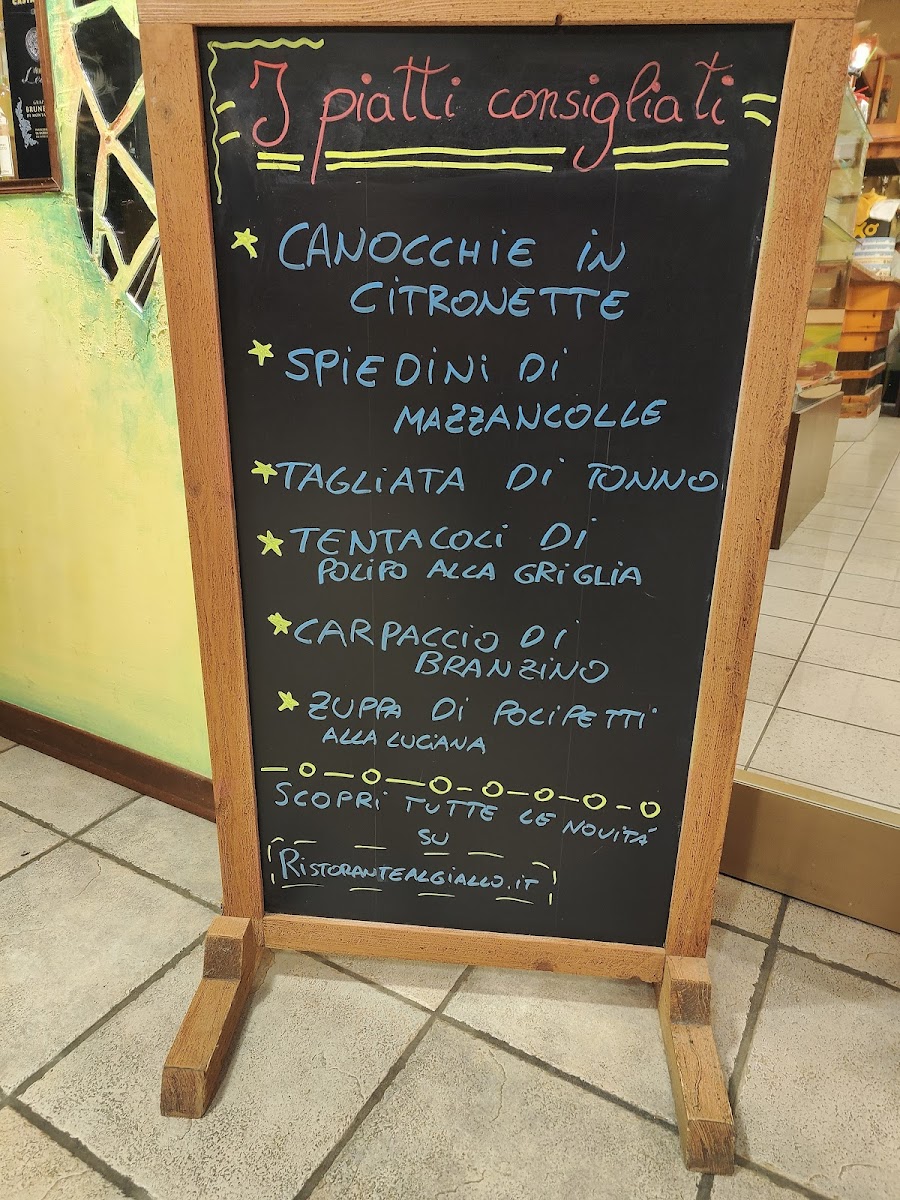 I piatti consigliati
CANOCCHIE IN
CITRONETTE
SPIEDINI DI
MAZZANCOLLE
TAGLIATA DI TONNO
TENTACOLI DI
POLIPO ALLA GRIGLIA
CARPACCIO DI
BRANZINO
ZUPPA DI POLIPETTI
ALLA LUCIANA
SCOPRI TUTTE LE NOVITÁ
SU
RISTORANTEALGIALLO.IT